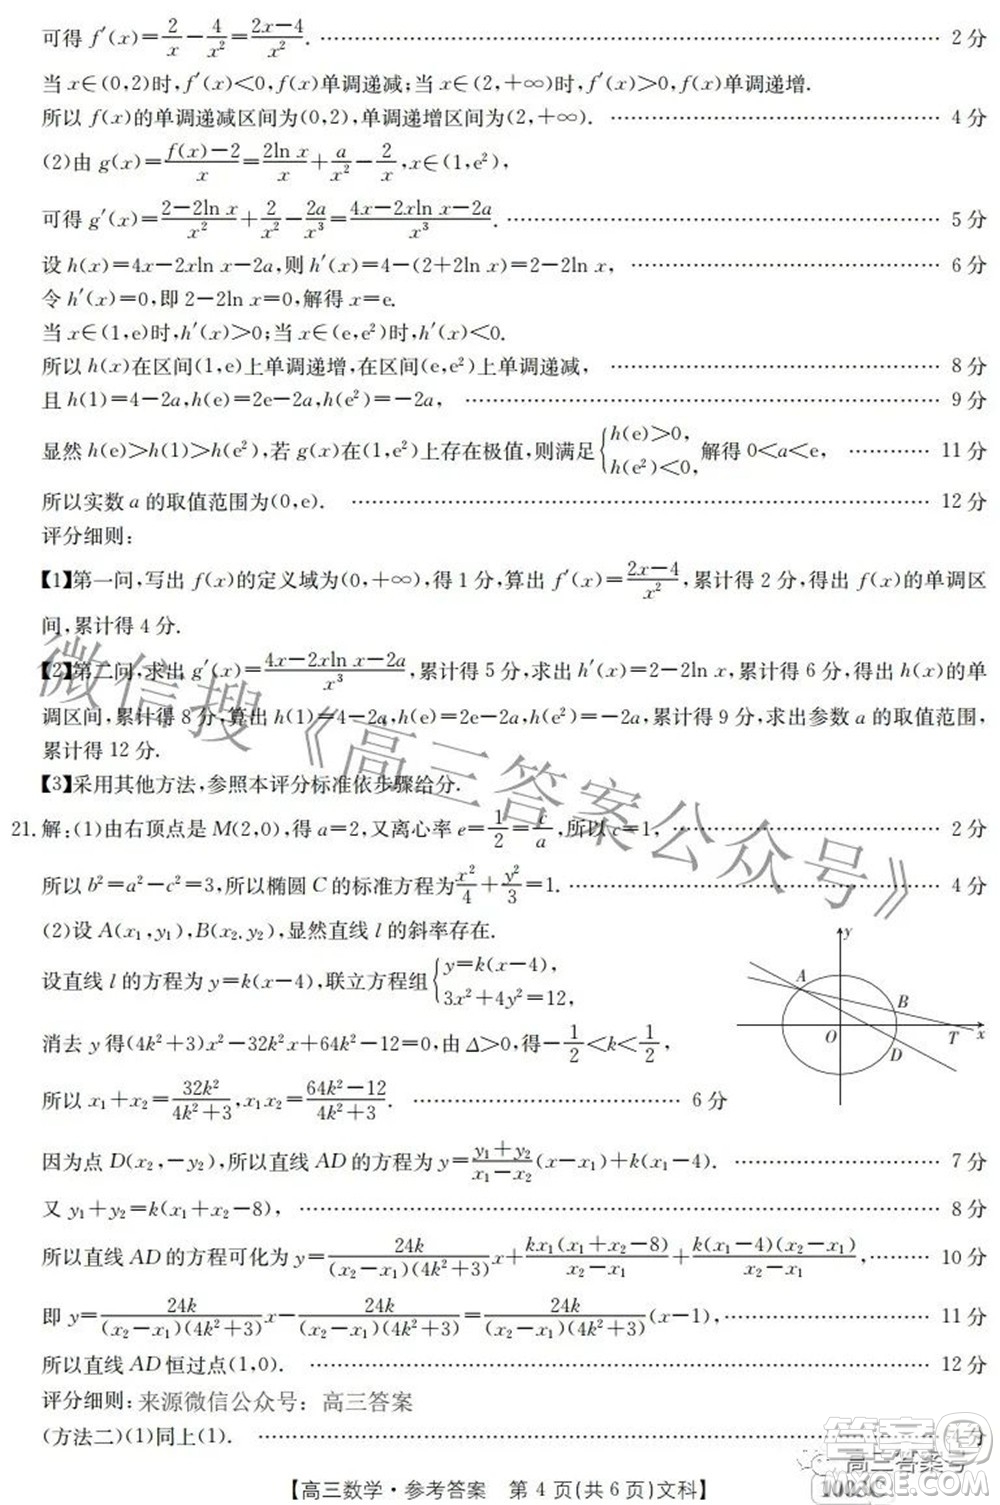 可得 f′(x)=2/x−4/x²=(2x−4)/x². ………… 2 分
当 x∈(0,2)时,f′(x)<0,f(x)单调递减;当 x∈(2,+∞)时,f′(x)>0,f(x)单调递增.
所以 f(x)的单调递减区间为(0,2),单调递增区间为(2,+∞). ………… 4 分
(2)由 g(x)=(f(x)−2)/x=2ln x/x+a/x²−2/x,x∈(1,e²),
可得 g′(x)=(2−2ln x)/x²+2/x²−2a/x³=(4x−2xln x−2a)/x³. ………… 5 分
设 h(x)=4x−2xln x−2a,则 h′(x)=4−(2+2ln x)=2−2ln x, ………… 6 分
令 h′(x)=0,即 2−2ln x=0,解得 x=e.
当 x∈(1,e)时,h′(x)>0;当 x∈(e,e²)时,h′(x)<0.
所以 h(x)在区间(1,e)上单调递增,在区间(e,e²)上单调递减, ………… 8 分
且 h(1)=4−2a,h(e)=2e−2a,h(e²)=−2a, ………… 9 分
显然 h(e)>h(1)>h(e²),若 g(x)在(1,e²)上存在极值,则满足{h(e)>0, h(e²)<0, 解得 0<a<e, ………… 11 分
所以实数 a 的取值范围为(0,e). ………… 12 分
评分细则:
【1】第一问,写出 f(x)的定义域为(0,+∞),得 1 分,算出 f′(x)=(2x−4)/x²,累计得 2 分,得出 f(x)的单调区
间,累计得 4 分.
【2】第二问,求出 g′(x)=(4x−2xln x−2a)/x³,累计得 5 分,求出 h′(x)=2−2ln x,累计得 6 分,得出 h(x)的单
调区间,累计得 8 分,算出 h(1)=4−2a,h(e)=2e−2a,h(e²)=−2a,累计得 9 分,求出参数 a 的取值范围,
累计得 12 分.
【3】采用其他方法,参照本评分标准依步骤给分.
微信搜《高三答案公众号》
21.解:(1)由右顶点是 M(2,0),得 a=2,又离心率 e=1/2=c/a,所以 c=1, ………… 2 分
所以 b²=a²−c²=3,所以椭圆 C 的标准方程为x²/4+y²/3=1. ………… 4 分
(2)设 A(x₁,y₁),B(x₂,y₂),显然直线 l 的斜率存在.
设直线 l 的方程为 y=k(x−4),联立方程组{y=k(x−4), 3x²+4y²=12,
消去 y 得(4k²+3)x²−32k²x+64k²−12=0,由 Δ>0,得−1/2<k<1/2,
y
A
B
O
D
T
x
所以 x₁+x₂=32k²/(4k²+3),x₁x₂=(64k²−12)/(4k²+3). ………… 6 分
因为点 D(x₂,−y₂),所以直线 AD 的方程为 y=(y₁+y₂)/(x₁−x₂)(x−x₁)+k(x₁−4). ………… 7 分
又 y₁+y₂=k(x₁+x₂−8), ………… 8 分
所以直线 AD 的方程可化为 y=24k/((x₂−x₁)(4k²+3))x+kx₁(x₁+x₂−8)/(x₂−x₁)+k(x₁−4)(x₂−x₁)/(x₂−x₁), ………… 10 分
即 y=24k/((x₂−x₁)(4k²+3))x−24k/((x₂−x₁)(4k²+3))=24k/((x₂−x₁)(4k²+3))(x−1), ………… 11 分
所以直线 AD 恒过点(1,0). ………… 12 分
评分细则:来源微信公众号:高三答案
(方法二)(1)同上(1). ………… 分
高三答案号
【高三数学·参考答案 第 4 页(共 6 页)文科】
1003C